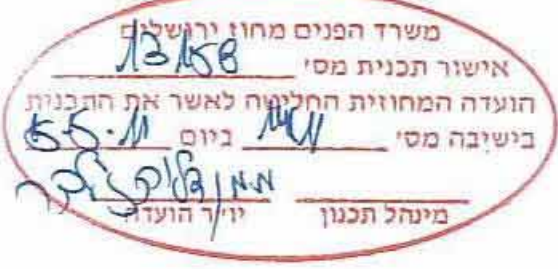 משרד הפנים מחוז ירושלים
אישור תכנית מס' 13158
הועדה המחוזית החליטה לאשר את התכנית
בישיבה מס' 14/11 ביום 5-5-11
מינהל תכנון יו"ר הועדה